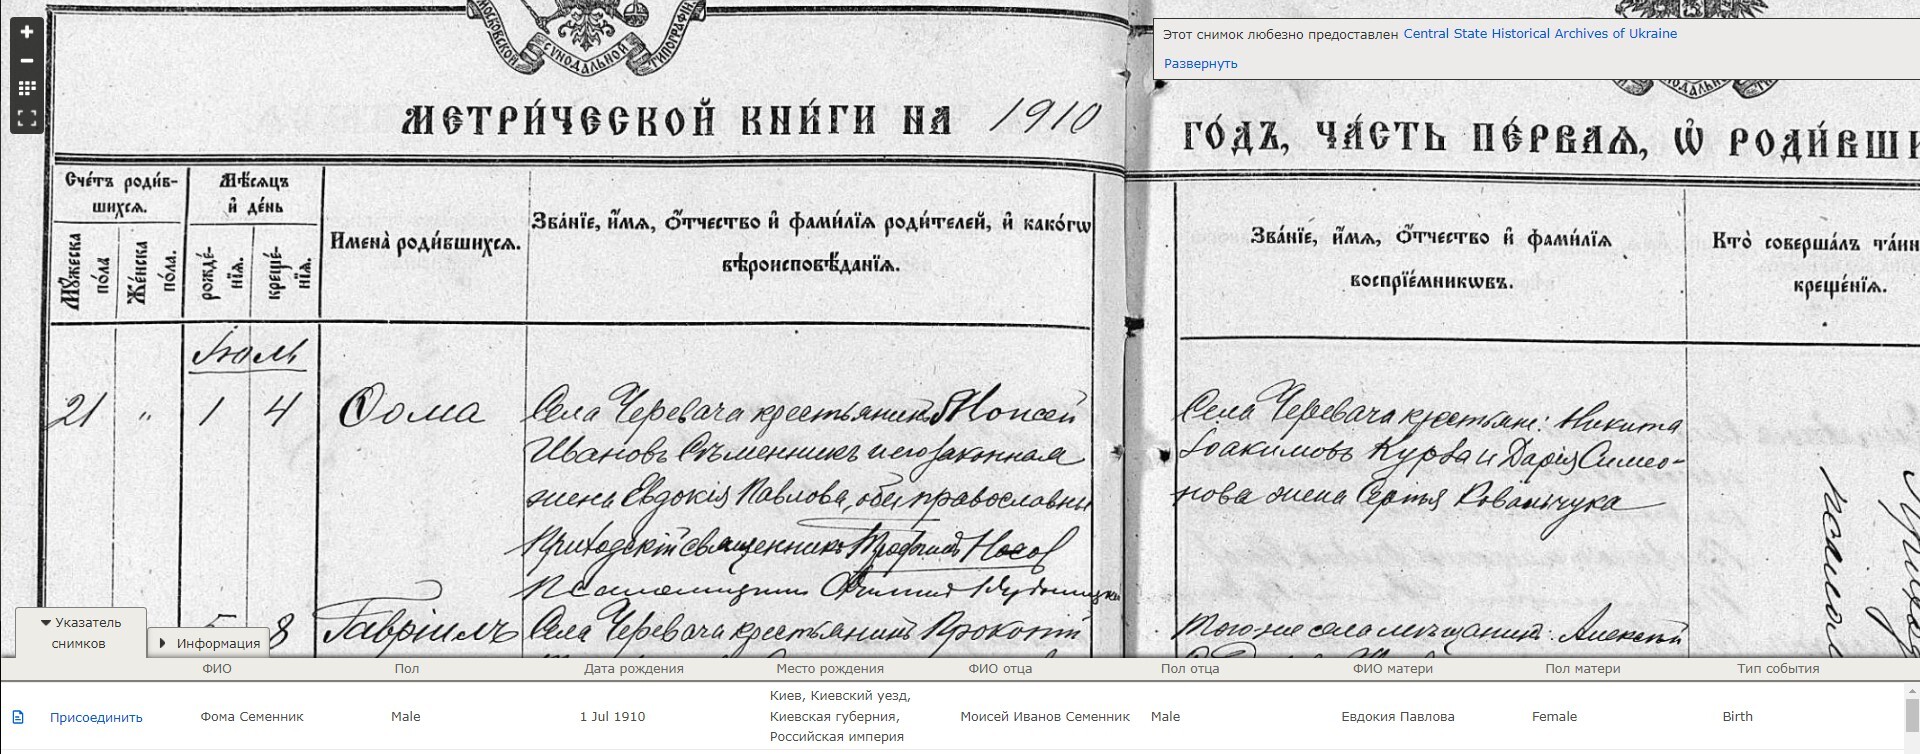 МОСКОВСКОЙ СУНОДАЛЬНОЙ ТИПОГРАФІИ
Этот снимок любезно предоставлен Central State Historical Archives of Ukraine
Развернуть
МЕТРИ́ЧЕСКОЙ КНИ́ГИ НА 1910
ГО́ДЪ, ЧА́СТЬ ПЕ́РВАЯ, Ѡ҆ РОДИ́ВШИ
Сче́тъ роди́в-
шихсѧ.
Мѣ́сѧцъ
и҆ де́нь
Мꙋ́жеска
по́ла
Же́нска
по́ла.
рожде́-
нїѧ.
креще́-
нїѧ.
Имена̀ роди́вшихсѧ.
Зва́нїе, и҆́мѧ, ѻ҆́тчество и҆ фами́лїѧ роди́телей, и҆ како́гѡ
вѣроисповѣ́данїѧ.
Зва́нїе, и҆́мѧ, ѻ҆́тчество и҆ фами́лїѧ
воспрїе́мникѡвъ.
Кто̀ соверша́лъ та́ин
креще́нїѧ.
Іюль
21 " 1 4 Ѳома
Села Черевача крестьянинъ Моисей
Ивановъ Сѣменникъ и его законная
жена Евдокія Павлова, оба православны
Приходскій священникъ Носов
Села Черевача крестьяне: Никита
Іоакимовъ Курва и Дарія Симео-
нова жена Сергѣя Ковальчука
5 8 Гавріилъ Села Черевача крестьянинъ Прокопій
того-же села мѣщанинъ: Алексѣй
Указатель
снимков
Информация
ФИО Пол Дата рождения Место рождения ФИО отца Пол отца ФИО матери Пол матери Тип события
Присоединить Фома Семенник Male 1 Jul 1910 Киев, Киевский уезд,
Киевская губерния,
Российская империя
Моисей Иванов Семенник Male Евдокия Павлова Female Birth